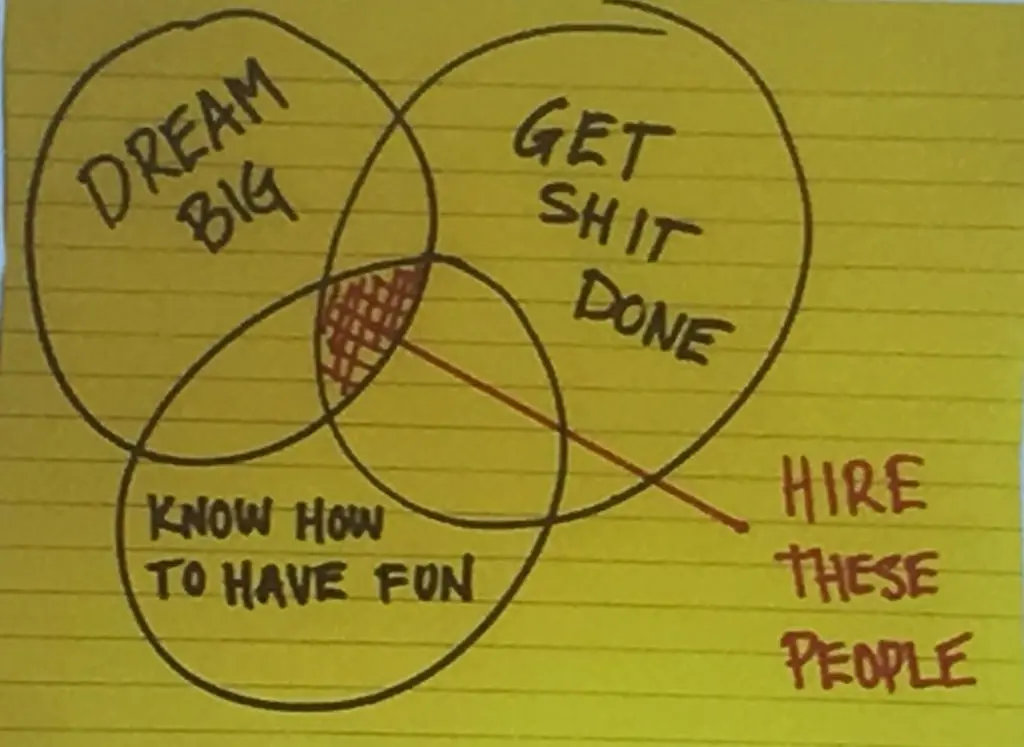 DREAM
BIG
GET
SHIT
DONE
KNOW HOW
TO HAVE FUN
HIRE
THESE
PEOPLE